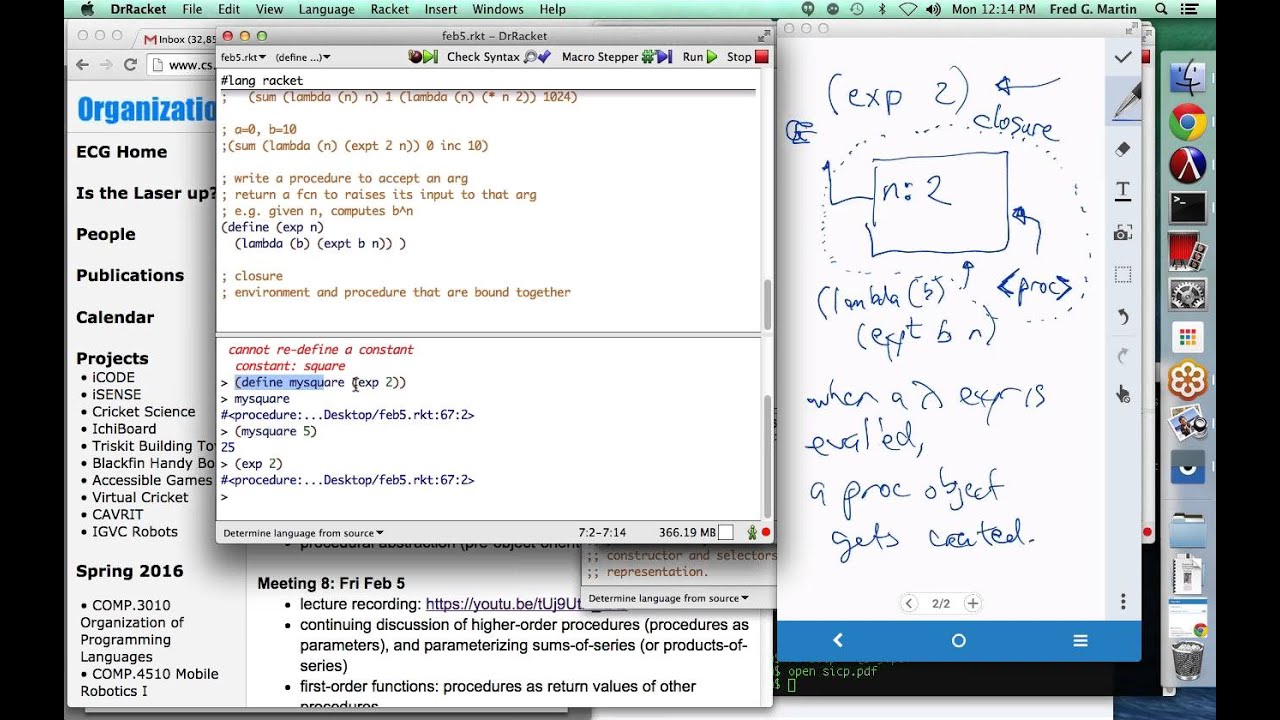 DrRacket File Edit View Language Racket Insert Windows Help
Mon 12:14 PM Fred G. Martin
Inbox (32,85
www.cs.
Organizatio
ECG Home
Is the Laser up?
People
Publications
Calendar
Projects
• iCODE
• iSENSE
• Cricket Science
• IchiBoard
• Triskit Building To
• Blackfin Handy Bo
• Accessible Games
• Virtual Cricket
• CAVRIT
• IGVC Robots
Spring 2016
• COMP.3010
Organization of
Programming
Languages
• COMP.4510 Mobile
Robotics I
feb5.rkt – DrRacket
feb5.rkt (define ...) Check Syntax Macro Stepper Run Stop
#lang racket
; (sum (lambda (n) n) 1 (lambda (n) (* n 2)) 1024)
; a=0, b=10
;(sum (lambda (n) (expt 2 n)) 0 inc 10)
; write a procedure to accept an arg
; return a fcn to raises its input to that arg
; e.g. given n, computes b^n
(define (exp n)
(lambda (b) (expt b n)) )
; closure
; environment and procedure that are bound together
cannot re-define a constant
constant: square
> (define mysquare (exp 2))
> mysquare
#<procedure:...Desktop/feb5.rkt:67:2>
> (mysquare 5)
25
> (exp 2)
#<procedure:...Desktop/feb5.rkt:67:2>
>
Determine language from source 7:2-7:14 366.19 MB
;; constructor and selectors
;; representation.
Determine language from source
Meeting 8: Fri Feb 5
• lecture recording: https://youtu.be/tUj9Ut
• continuing discussion of higher-order procedures (procedures as
parameters), and parameterizing sums-of-series (or products-of-
series)
• first-order functions: procedures as return values of other
procedures
(exp 2)
closure
E
n: 2
(lambda (b) <proc>
(expt b n)
when a λ expr is
evaled,
a proc object
gets created.
2/2
T
$ open sicp.pdf
$